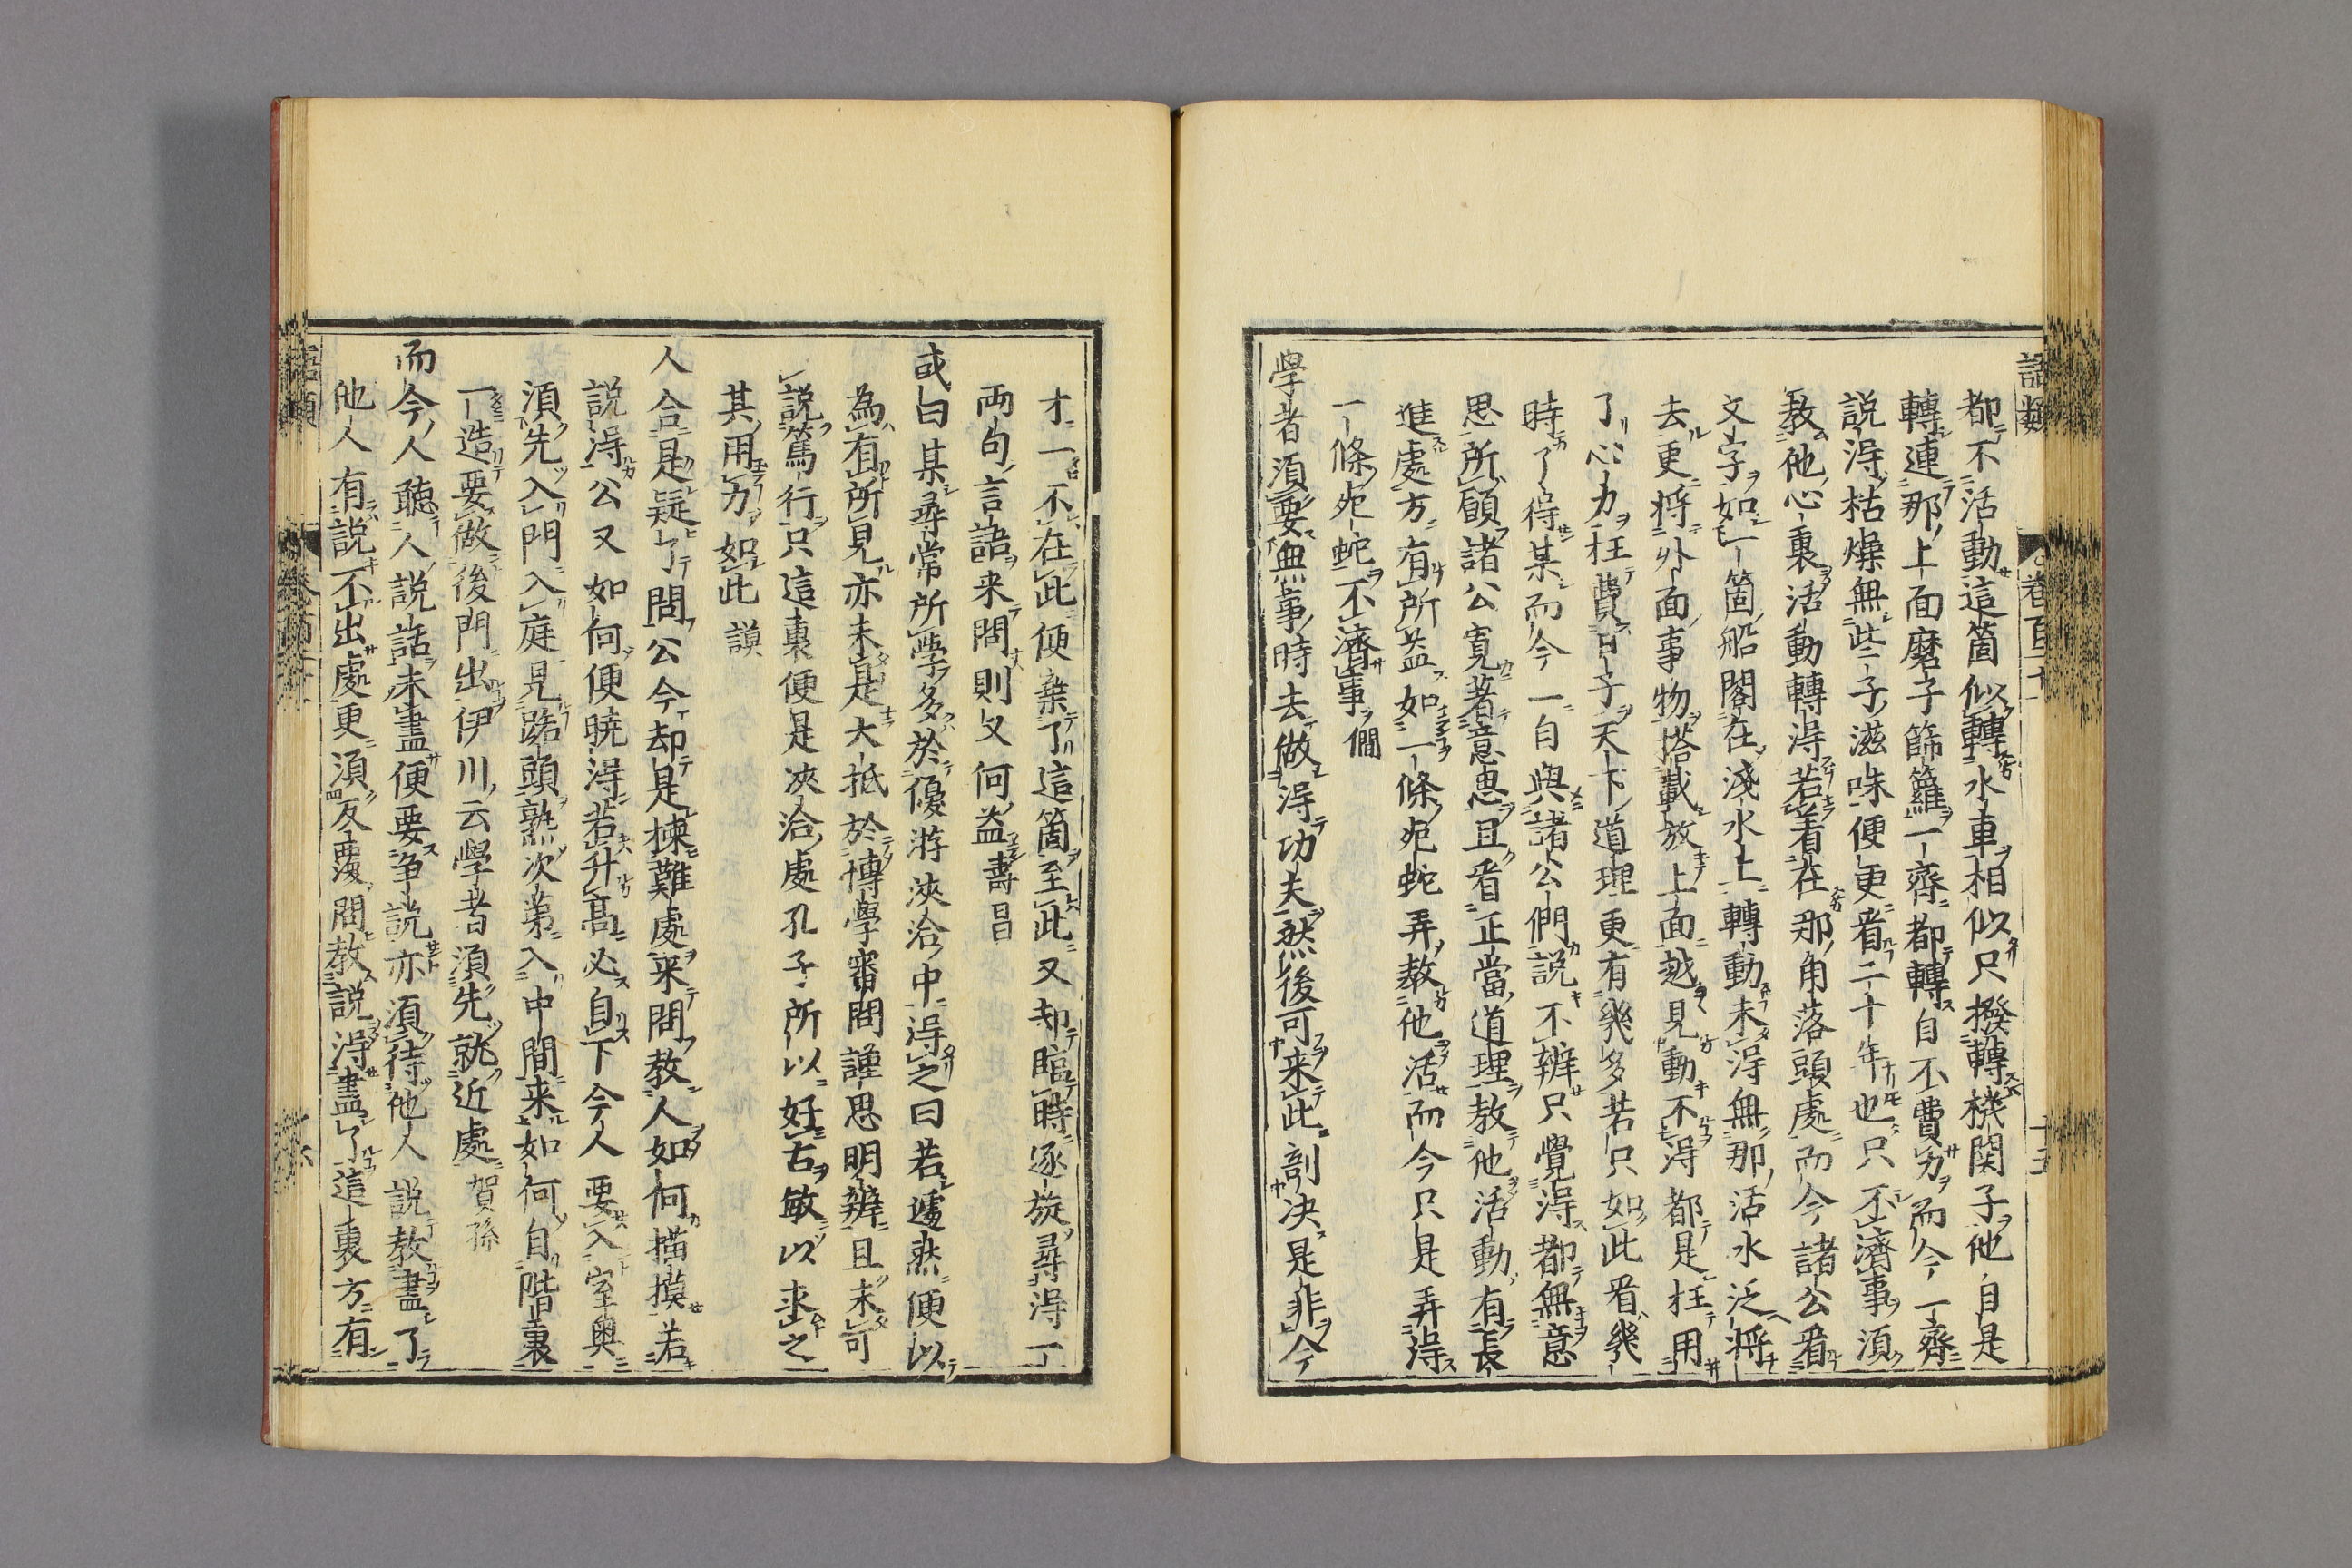 語類
卷百二十一
十五
都不活動這箇似轉水車相似只撥轉機関子他自是
轉連那上面磨子篩籮一齊都轉自不費力而今一齊
説得枯燥無些子滋味便更看二十年也只不濟事須
教他心裏活動轉得若著在那角落頭處而今諸公看
文字如一箇船閣在淺水上轉動未得無那活水泛將
去更将外面事物搭載放上面越見動不得都是枉用
了心力枉費日子天下道理更有幾多若只如此看幾
時了得某而今一自與諸公們説不辨只覺得都無意
思所願諸公寬著意思且看正當道理教他活動有長
進處方有所益如一條死蛇弄教他活而今只是弄得
一條死蛇不濟事僩
學者須要無事時去做得功夫然後可来此剖决是非今
才一不在此便棄了這箇至此又却臨時逐旋尋得一
両句言語来問則又何益壽昌
或曰某尋常所學多於優游浹洽中得之曰若遽然便以
為有所見亦未是大抵於博學審問謹思明辨且未可
説篤行只這裏便是浹洽處孔子所以好古敏以求之
其用力如此謨
人合是疑了問公今却是揀難處来問教人如何描摸若
説得公又如何便暁得若升髙必自下今人要入室奥
須先入門入庭見路頭熟次第入中間来如何自階裏
一造要做後門出伊川云學者須先就近處賀孫
而今人聽人説話未盡便要争説亦須待他人説教盡了
他人有説不出處更須反覆問教説得盡了這裏方有
語類
十六